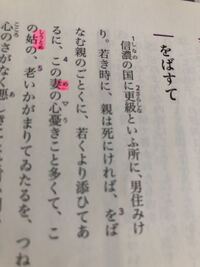 をばすて
信濃の国に更級といふ所に、男住みけ
り。若き時に、親は死にければ、をば
なむ親のごとくに、若くより添ひてあ
るに、この妻の心憂きこと多くて、こ
の姑の、老いかがまりてゐたるを、つね
心のさがなく悪し